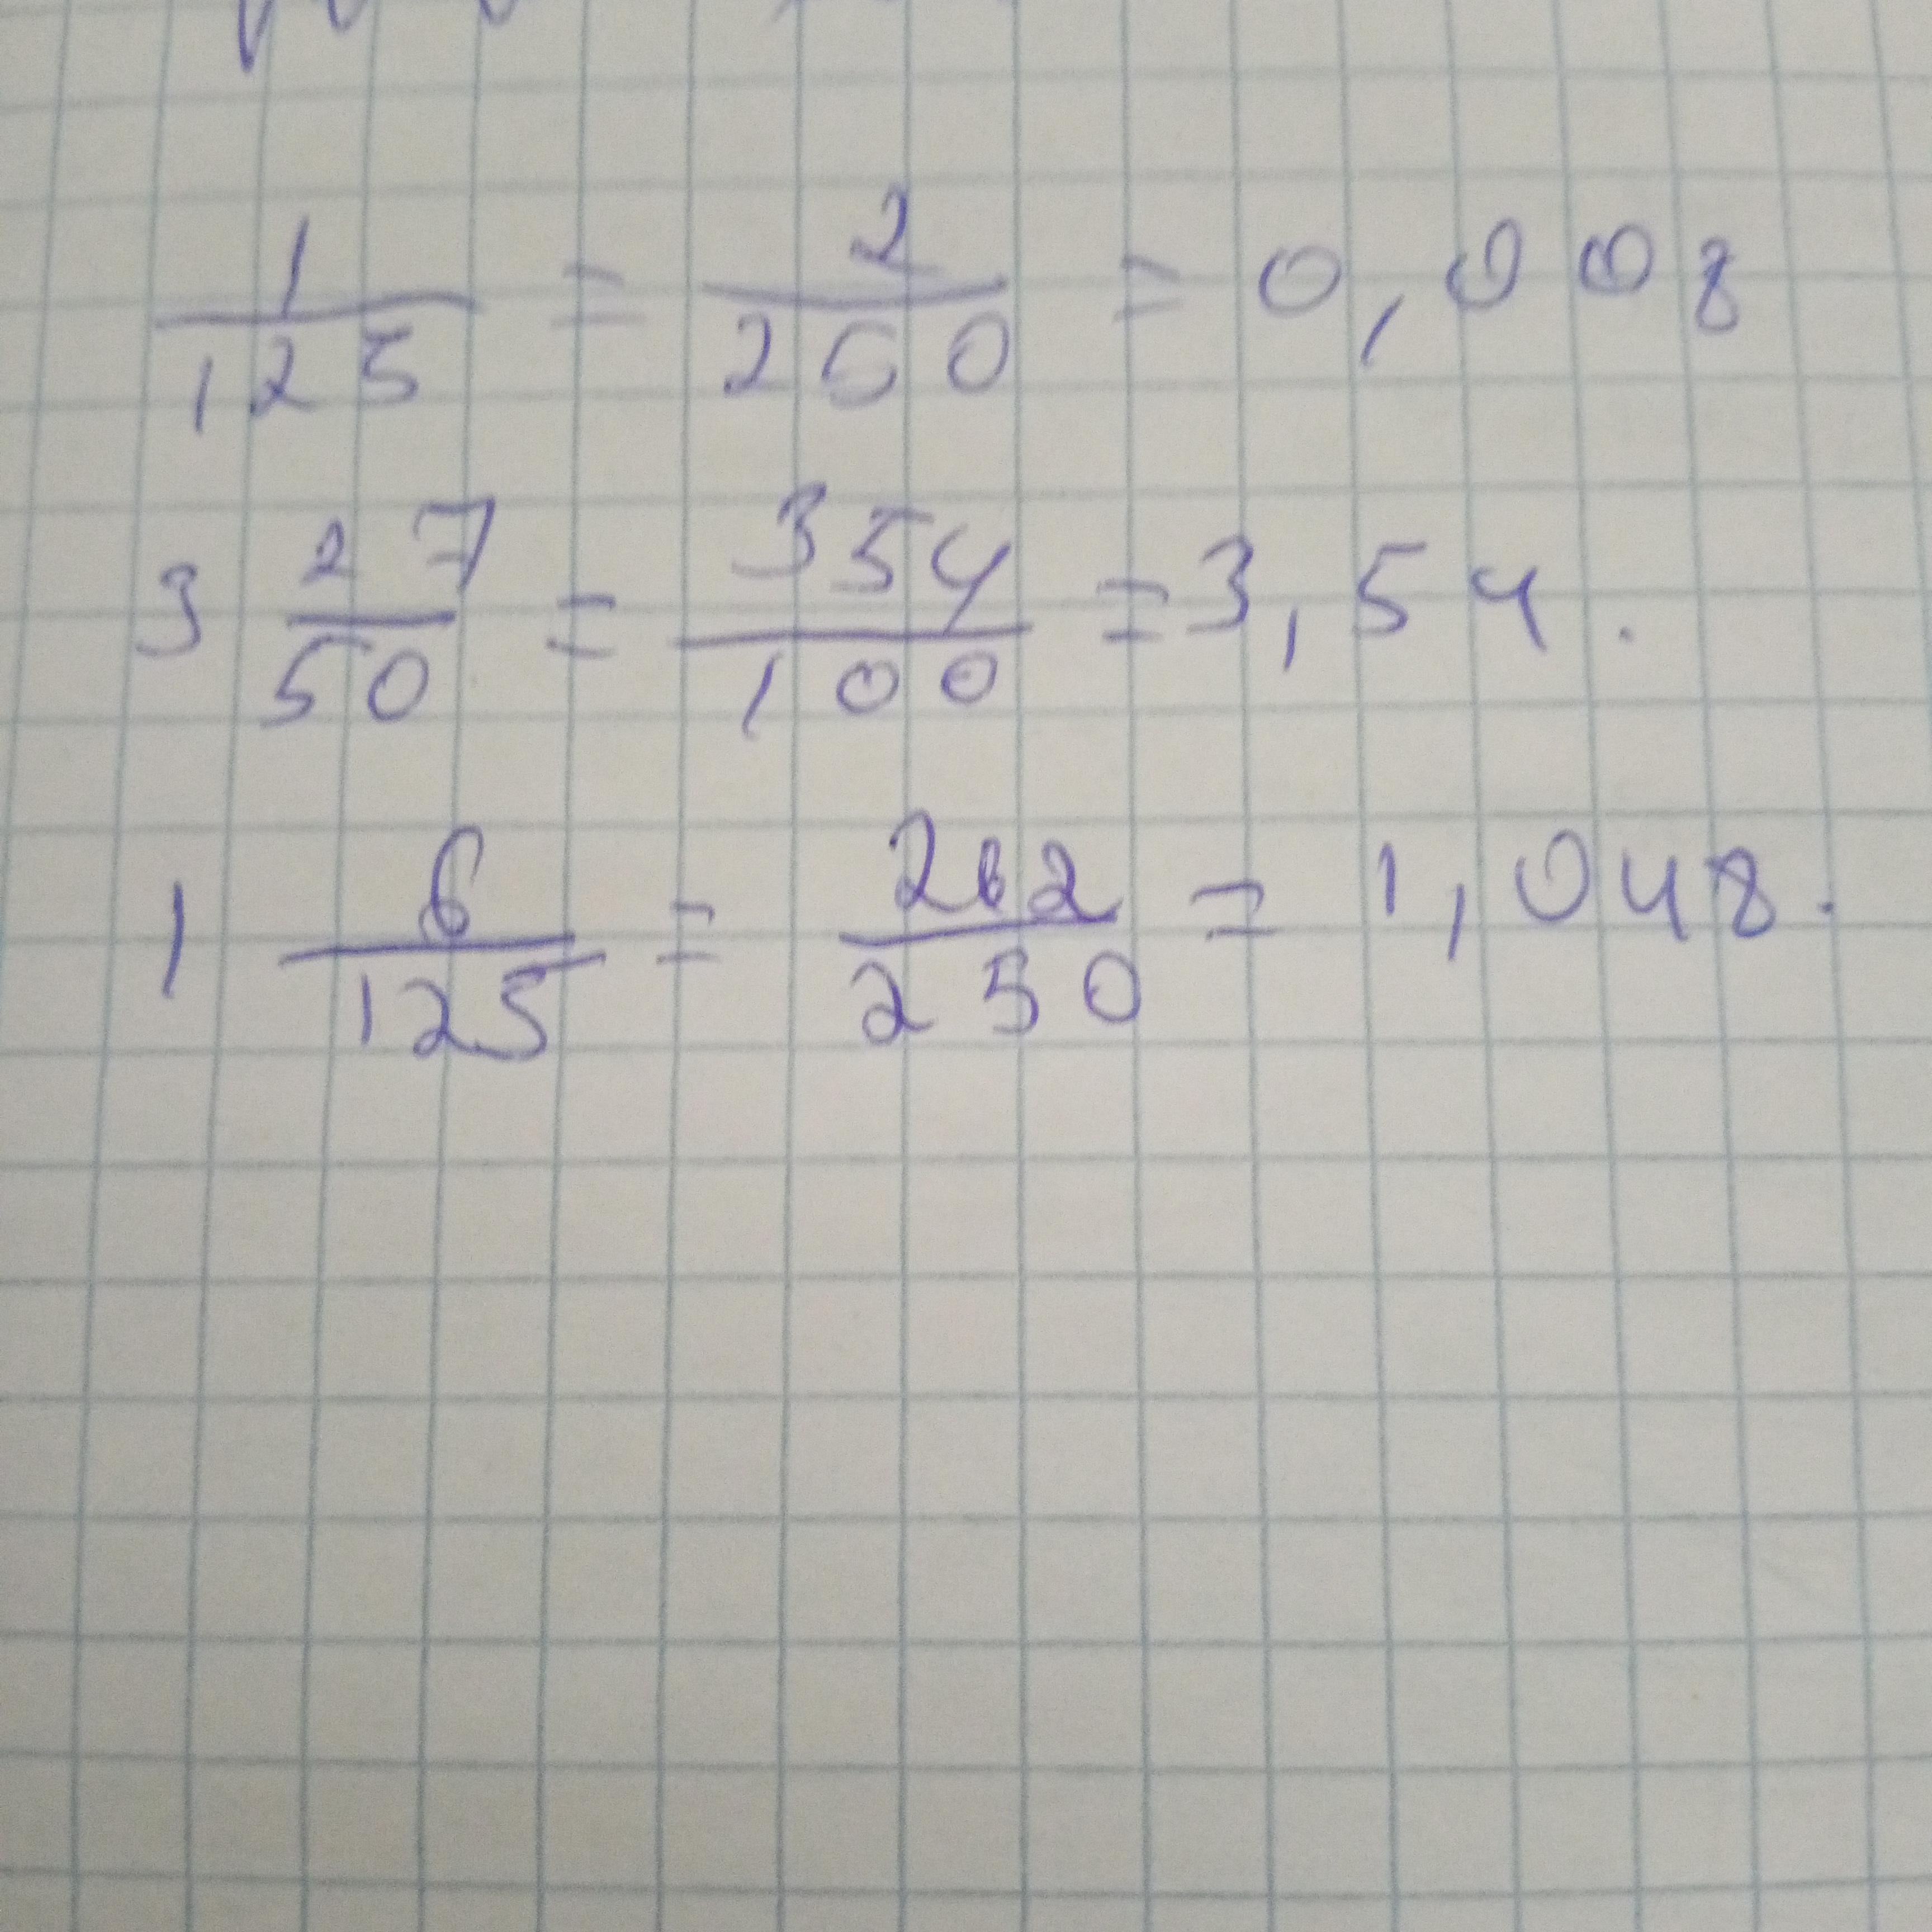 1/125 = 2/250 = 0,008
3 27/50 = 354/100 = 3,54.
1 6/125 = 262/250 = 1,048.